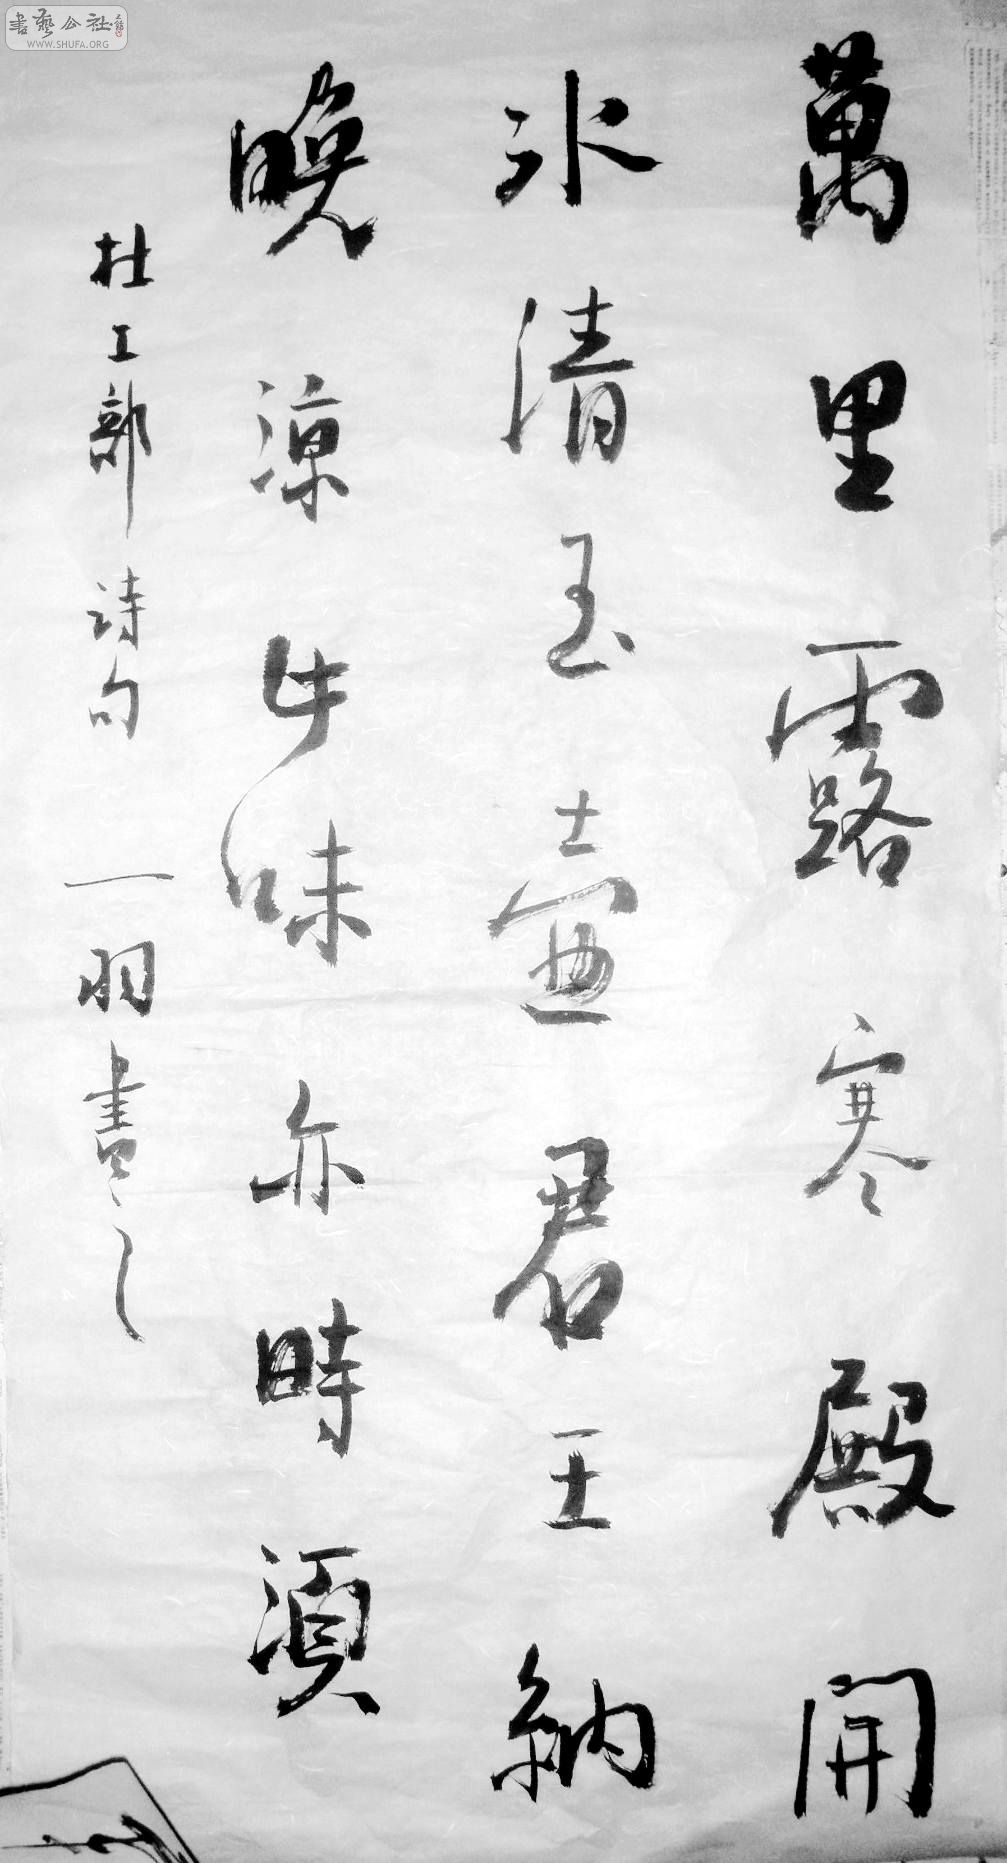 萬里露寒殿開
冰清玉壺君王納
晚涼此味亦時須
杜工部詩句 一羽書之
書藝公社
WWW.SHUFA.ORG